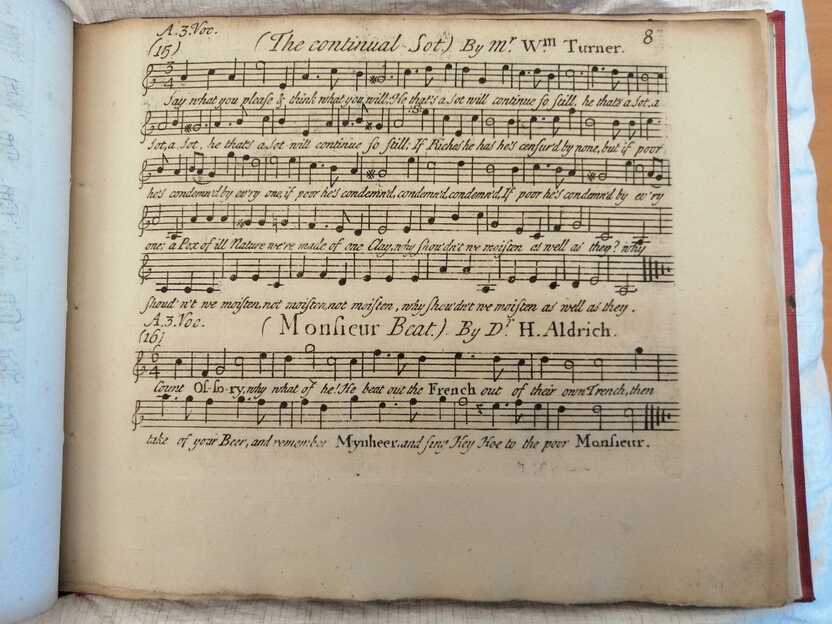 A.3.Voc.
(15) (The continual Sot.) By Mr. Wm. Turner. 8
3 4
Say what you please & think what you will, He that's a Sot will continue so still, he that's a Sot, a
Sot, a Sot, he that's a Sot will continue so still; If Riches he has he's censur'd by none, but if poor
he's condemn'd by ev'ry one, if poor he's condemn'd, condemn'd, condemn'd, If poor he's condemn'd by ev'ry
one; a Pox of ill Nature we're made of one Clay, why shou'dn't we moisten as well as they? why
shoud'n't we moisten, not moisten, not moisten, why shou'dn't we moisten as well as they.
A.3.Voc.
(16) (Monsieur Beat.) By Dr. H. Aldrich.
6 4
Count Os-so-ry, why what of he! He beat out the French out of their own Trench, then
take of your Beer, and remember Mynheer, and sing Hey Hoe to the poor Monsieur.